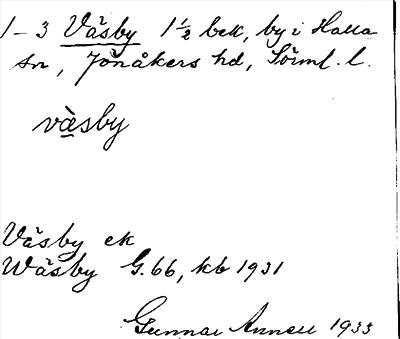 1-3 Väsby 1½ bek, by i Halla
sn, Jönåkers hd, Sörml. l.
vä̀sby
Väsby ek
Wäsby G.66, kb 1931
Gunnar Annell 1933